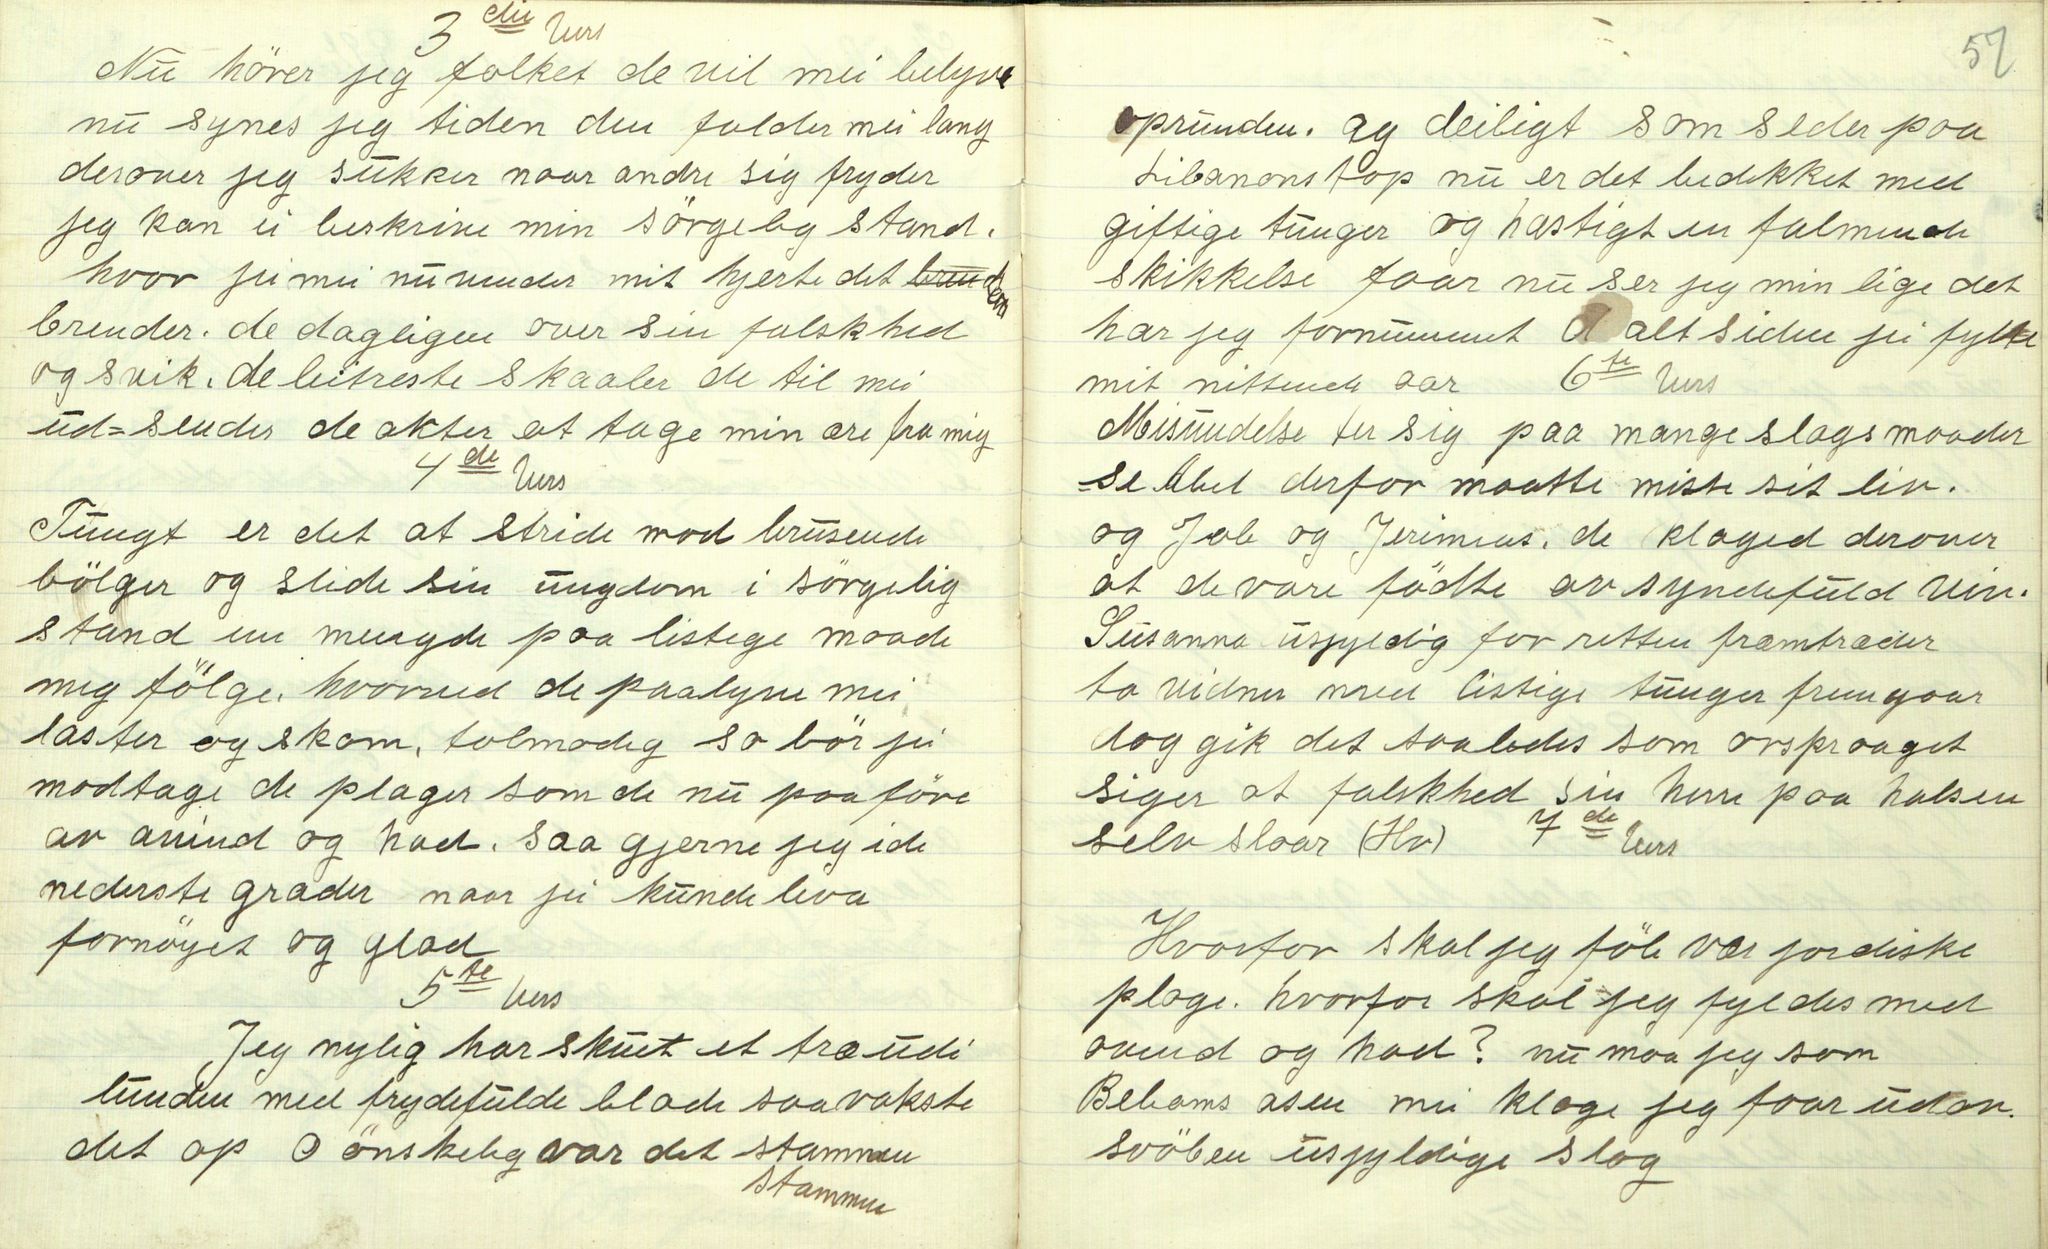 3die Vers
Nu hörer jeg folket de vil mei belyve
nu synes jeg tiden den falder mei lang
derover jeg sukker naar andre sig fryder
jeg kan ei beskrive min sörgelig stand.
hvor jei mei nu vender mit hjerte det
brender. de dagligen over sin falskhed
og svik. de beitreste skaaler de til mei
ud=sender de akter at tage min ære fra mig
4de Vers
Tungt er det at stride mod brusende
bölger og slide sin ungdom i sörgelig
stand en mengde paa listege maade
mig fölge. hvormed de paalyve mei
laster og skam, tolmodig so bör jei
modtage de plager som de nu paaföre
av avind og had. saa gjerne jeg i de
nederste grader naar jei kunde leva
fornöyet og glad
5te Vers
Jeg nylig har skuet et træ udi
lunden med frydefulde blade saa vakste
det op O önskelig var det stammen
stammen
57
oprunden. og deiligt som seder paa
Libanons top nu er det bedekket med
giftige tunger og hastigt en falmende
skikkelse faar nu ser jeg min lige det
har jeg fornummet alt siden jei fylte
mit nittende aar 6te Vers
Misundelse ter sig paa mange slags maader
se Abel derfor maatte miste sit liv.
og Job og Jerimias. de klaged derover
at de vare födte av syndefuld viv.
Susanna usjyldig for retten fræmtræder
to vidner med listige tunger fremgaar
dog gik det saaledes som orspraaget
siger at falskhed sin herre paa halsen
selv slaar (Hv) 7de Vers
Hvorfor skal jeg föle vær jordiske
plage. hvorfor skal jeg fyldes med
avend og had? nu maa jeg som
Beliams asen mei klage jeg faar udav.
svöben usjyldige slag